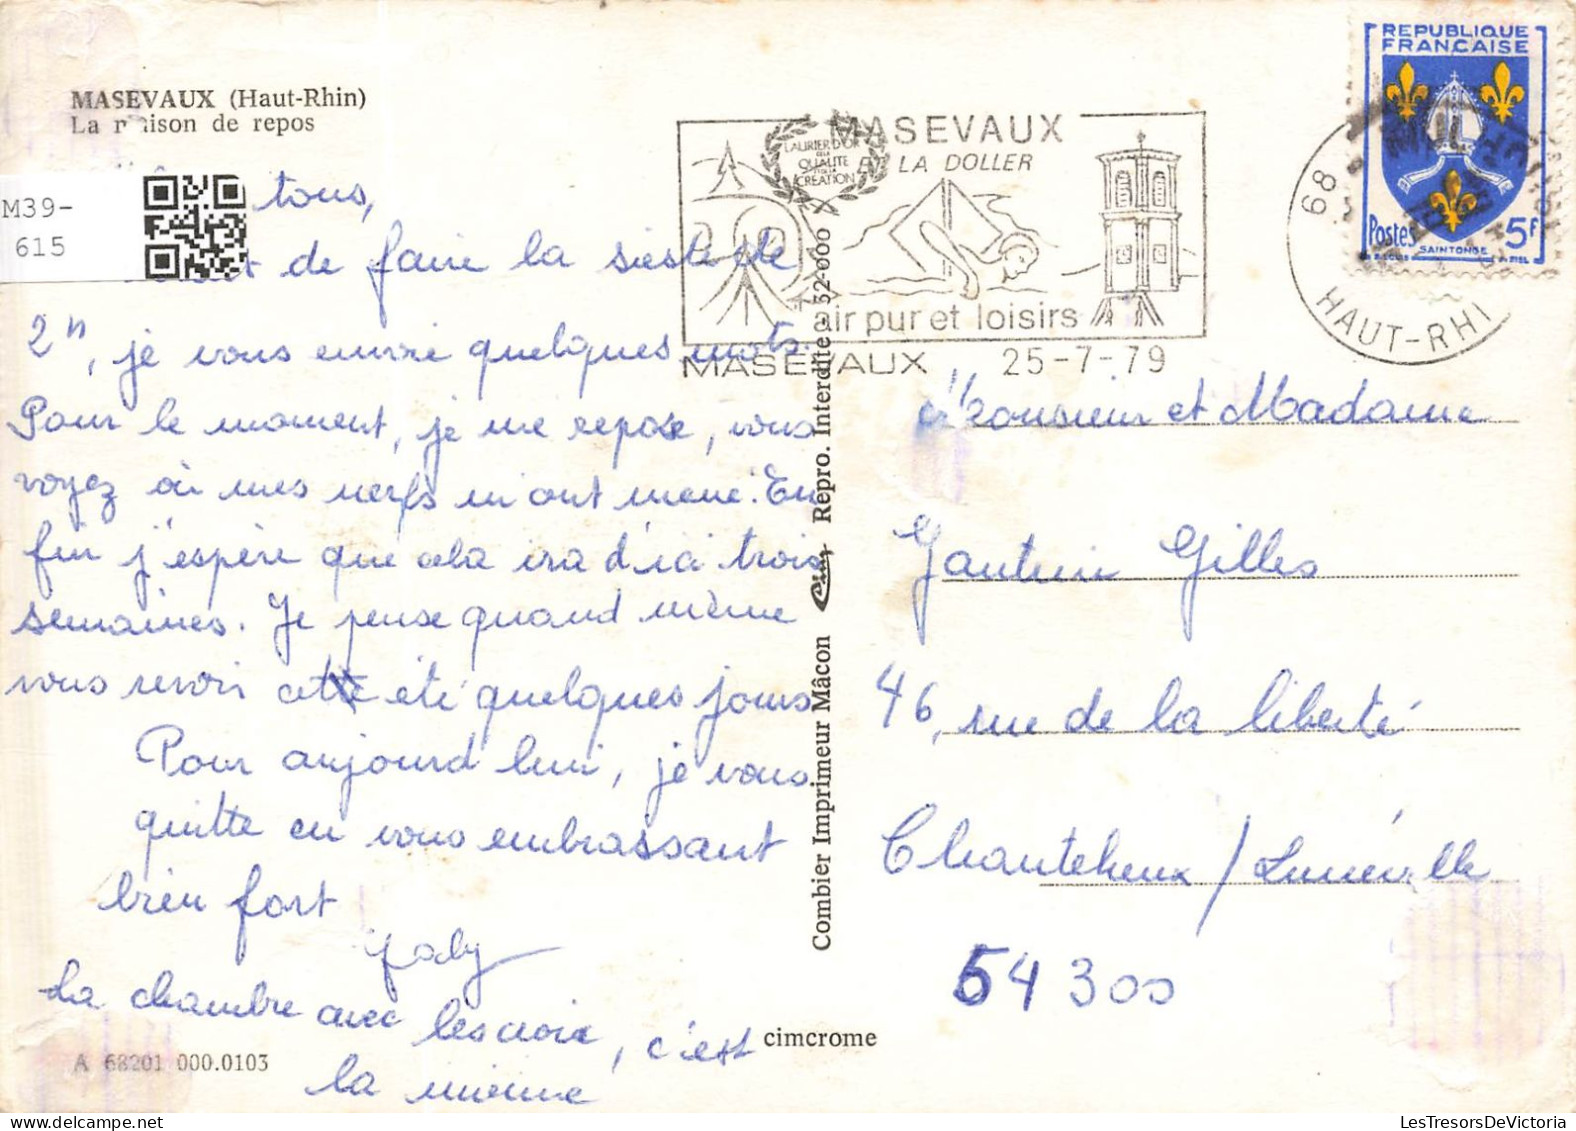 MASEVAUX (Haut-Rhin)
La maison de repos
M39-
615
tous,
de faire la sieste de
2h, je vous envoie quelques mots.
Pour le moment, je me repose, vous
voyez où mes nerfs m'ont mené. En
fin j'espère que cela ira d'ici trois
semaines. Je pense quand même
vous revoir cet été quelques jours
Pour aujourd'hui, je vous
quitte en vous embrassant
bien fort
Gaby
La chambre avec les croix, c'est
la mienne
A 68201 000.0103
cimcrome
Combier Imprimeur Mâcon Cim Repro. Interdite 32-000
LAURIER D'OR
DE LA
QUALITÉ
CRÉATION
MASEVAUX
LA DOLLER
air pur et loisirs
MASEVAUX 25-7-79
68
HAUT-RHI
REPUBLIQUE
FRANÇAISE
Postes
SAINTONGE
5F
Monsieur et Madame
Gauthier Gilles
46, rue de la liberté
Chanteheux / Lunéville
54300
www.LesTresorsDeVictoria.com